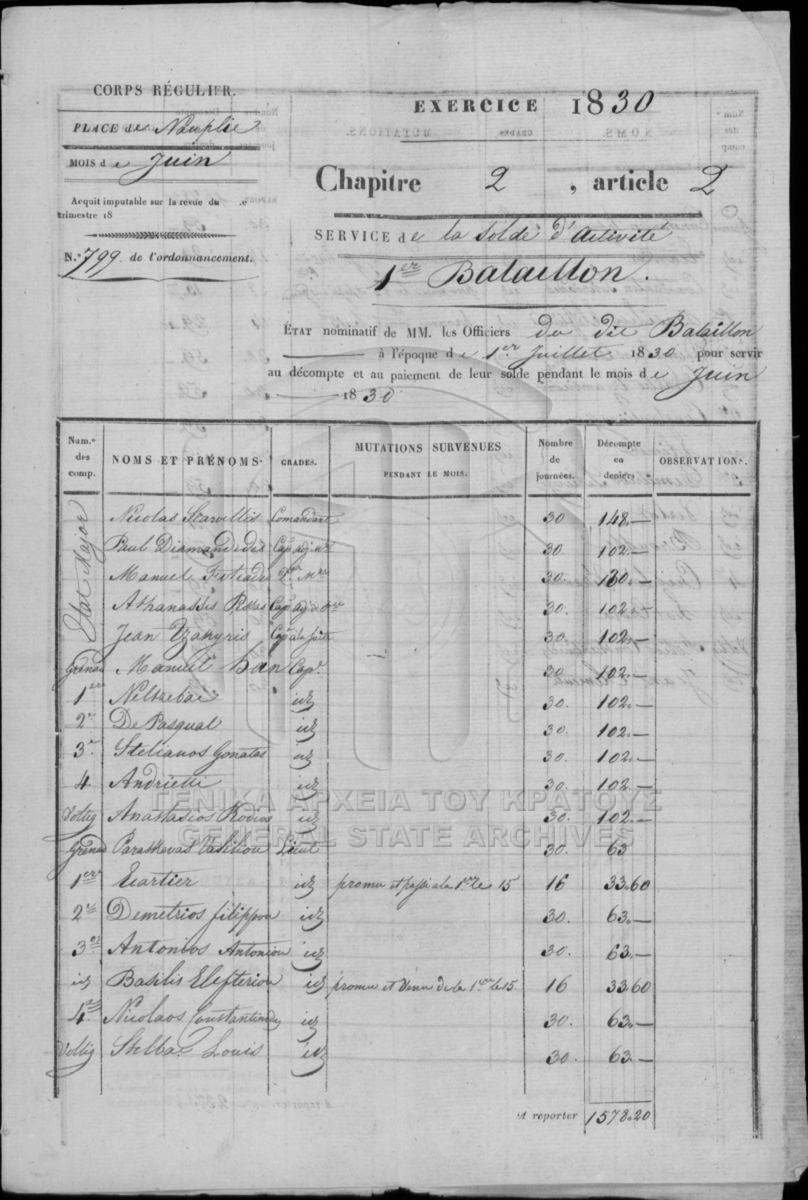 CORPS RÉGULIER.
PLACE de Nauplie
MOIS de Juin
Acquit imputable sur la revue du .e
trimestre 18
N.º 799 de l'ordonnancement.
EXERCICE 1830
Chapitre 2, article 2
SERVICE de la Solde d'Activité
1er Bataillon.
ÉTAT nominatif de MM. les Officiers du dit Bataillon
à l'époque de 1er Juillet 1830 pour servir
au décompte et au paiement de leur solde pendant le mois de Juin
1830
Num.º des comp. NOMS ET PRÉNOMS. GRADES. MUTATIONS SURVENUES PENDANT LE MOIS. Nombre de journées. Décompte en deniers OBSERVATIONS.
Etat Major
Nicolas Starvellis Comandant 30 148.—
Paul Diamandides Capne adj. 30. 102.—
Manuel 30. 130.—
Athanassis 30. 102.—
Jean Tzanyris Capne à la suite 30. 102.—
Grenad Manuel Han Capne 30. 102.—
1er Neltzebac id 30. 102.—
2e De Pasqual id 30. 102.—
3e Stelianos Gonatas id 30. 102.—
4 Andrietti id 30. 102.—
Voltig Anastasios Rodios id 30. 102.—
Grenad Paraskevas Vasiliou Lieut 30. 63
1ere Ecartier id promu et passé a la 1ere le 15 16 33.60
2e Demetrios filippou id 30. 63.—
3e Antonios Antoniou id 30. 63.—
id Basilis Elefteriou id promu et Venu de la 1ere le 15. 16 33.60
4e Nicolaos Constantinides id 30. 63.—
Voltig Stelba Louis id 30. 63.—
A reporter 1578.20
ΓΕΝΙΚΑ ΑΡΧΕΙΑ ΤΟΥ ΚΡΑΤΟΥΣ
GENERAL STATE ARCHIVES